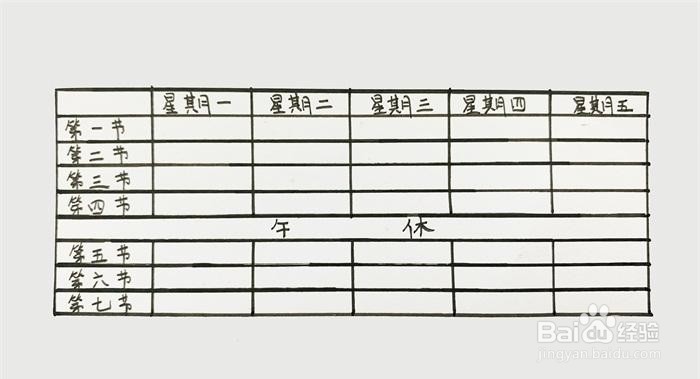 星期一 星期二 星期三 星期四 星期五
第一节
第二节
第三节
第四节
午 休
第五节
第六节
第七节
Baidu经验
jingyan.baidu.com